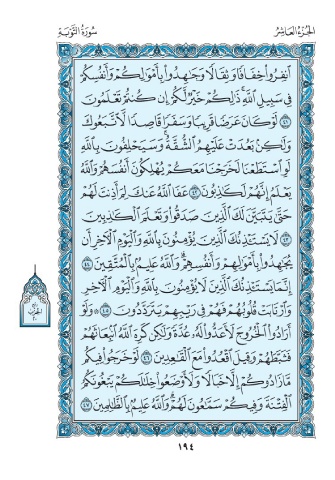 الجزء العاشر
سورة التوبة
انفروا خفافا وثقالا وجاهدوا بأموالكم وأنفسكم
في سبيل الله ذلكم خير لكم إن كنتم تعلمون
٤١ لو كان عرضا قريبا وسفرا قاصدا لاتبعوك
ولكن بعدت عليهم الشقة وسيحلفون بالله
لو استطعنا لخرجنا معكم يهلكون أنفسهم والله
يعلم إنهم لكاذبون ٤٢ عفا الله عنك لم أذنت لهم
حتى يتبين لك الذين صدقوا وتعلم الكاذبين
٤٣ لا يستئذنك الذين يؤمنون بالله واليوم الآخر أن
يجهدوا بأموالهم وأنفسهم والله عليم بالمتقين ٤٤
إنما يستئذنك الذين لا يؤمنون بالله واليوم الآخر
وارتابت قلوبهم فهم في ريبهم يترددون ٤٥ ولو
أرادوا الخروج لأعدوا له عدة ولكن كره الله انبعاثهم
فثبطهم وقيل اقعدوا مع القاعدين ٤٦ لو خرجوا فيكم
ما زادوكم إلا خبالا ولأوضعوا خلالكم يبغونكم
الفتنة وفيكم سماعون لهم والله عليم بالظالمين ٤٧
١٩٤